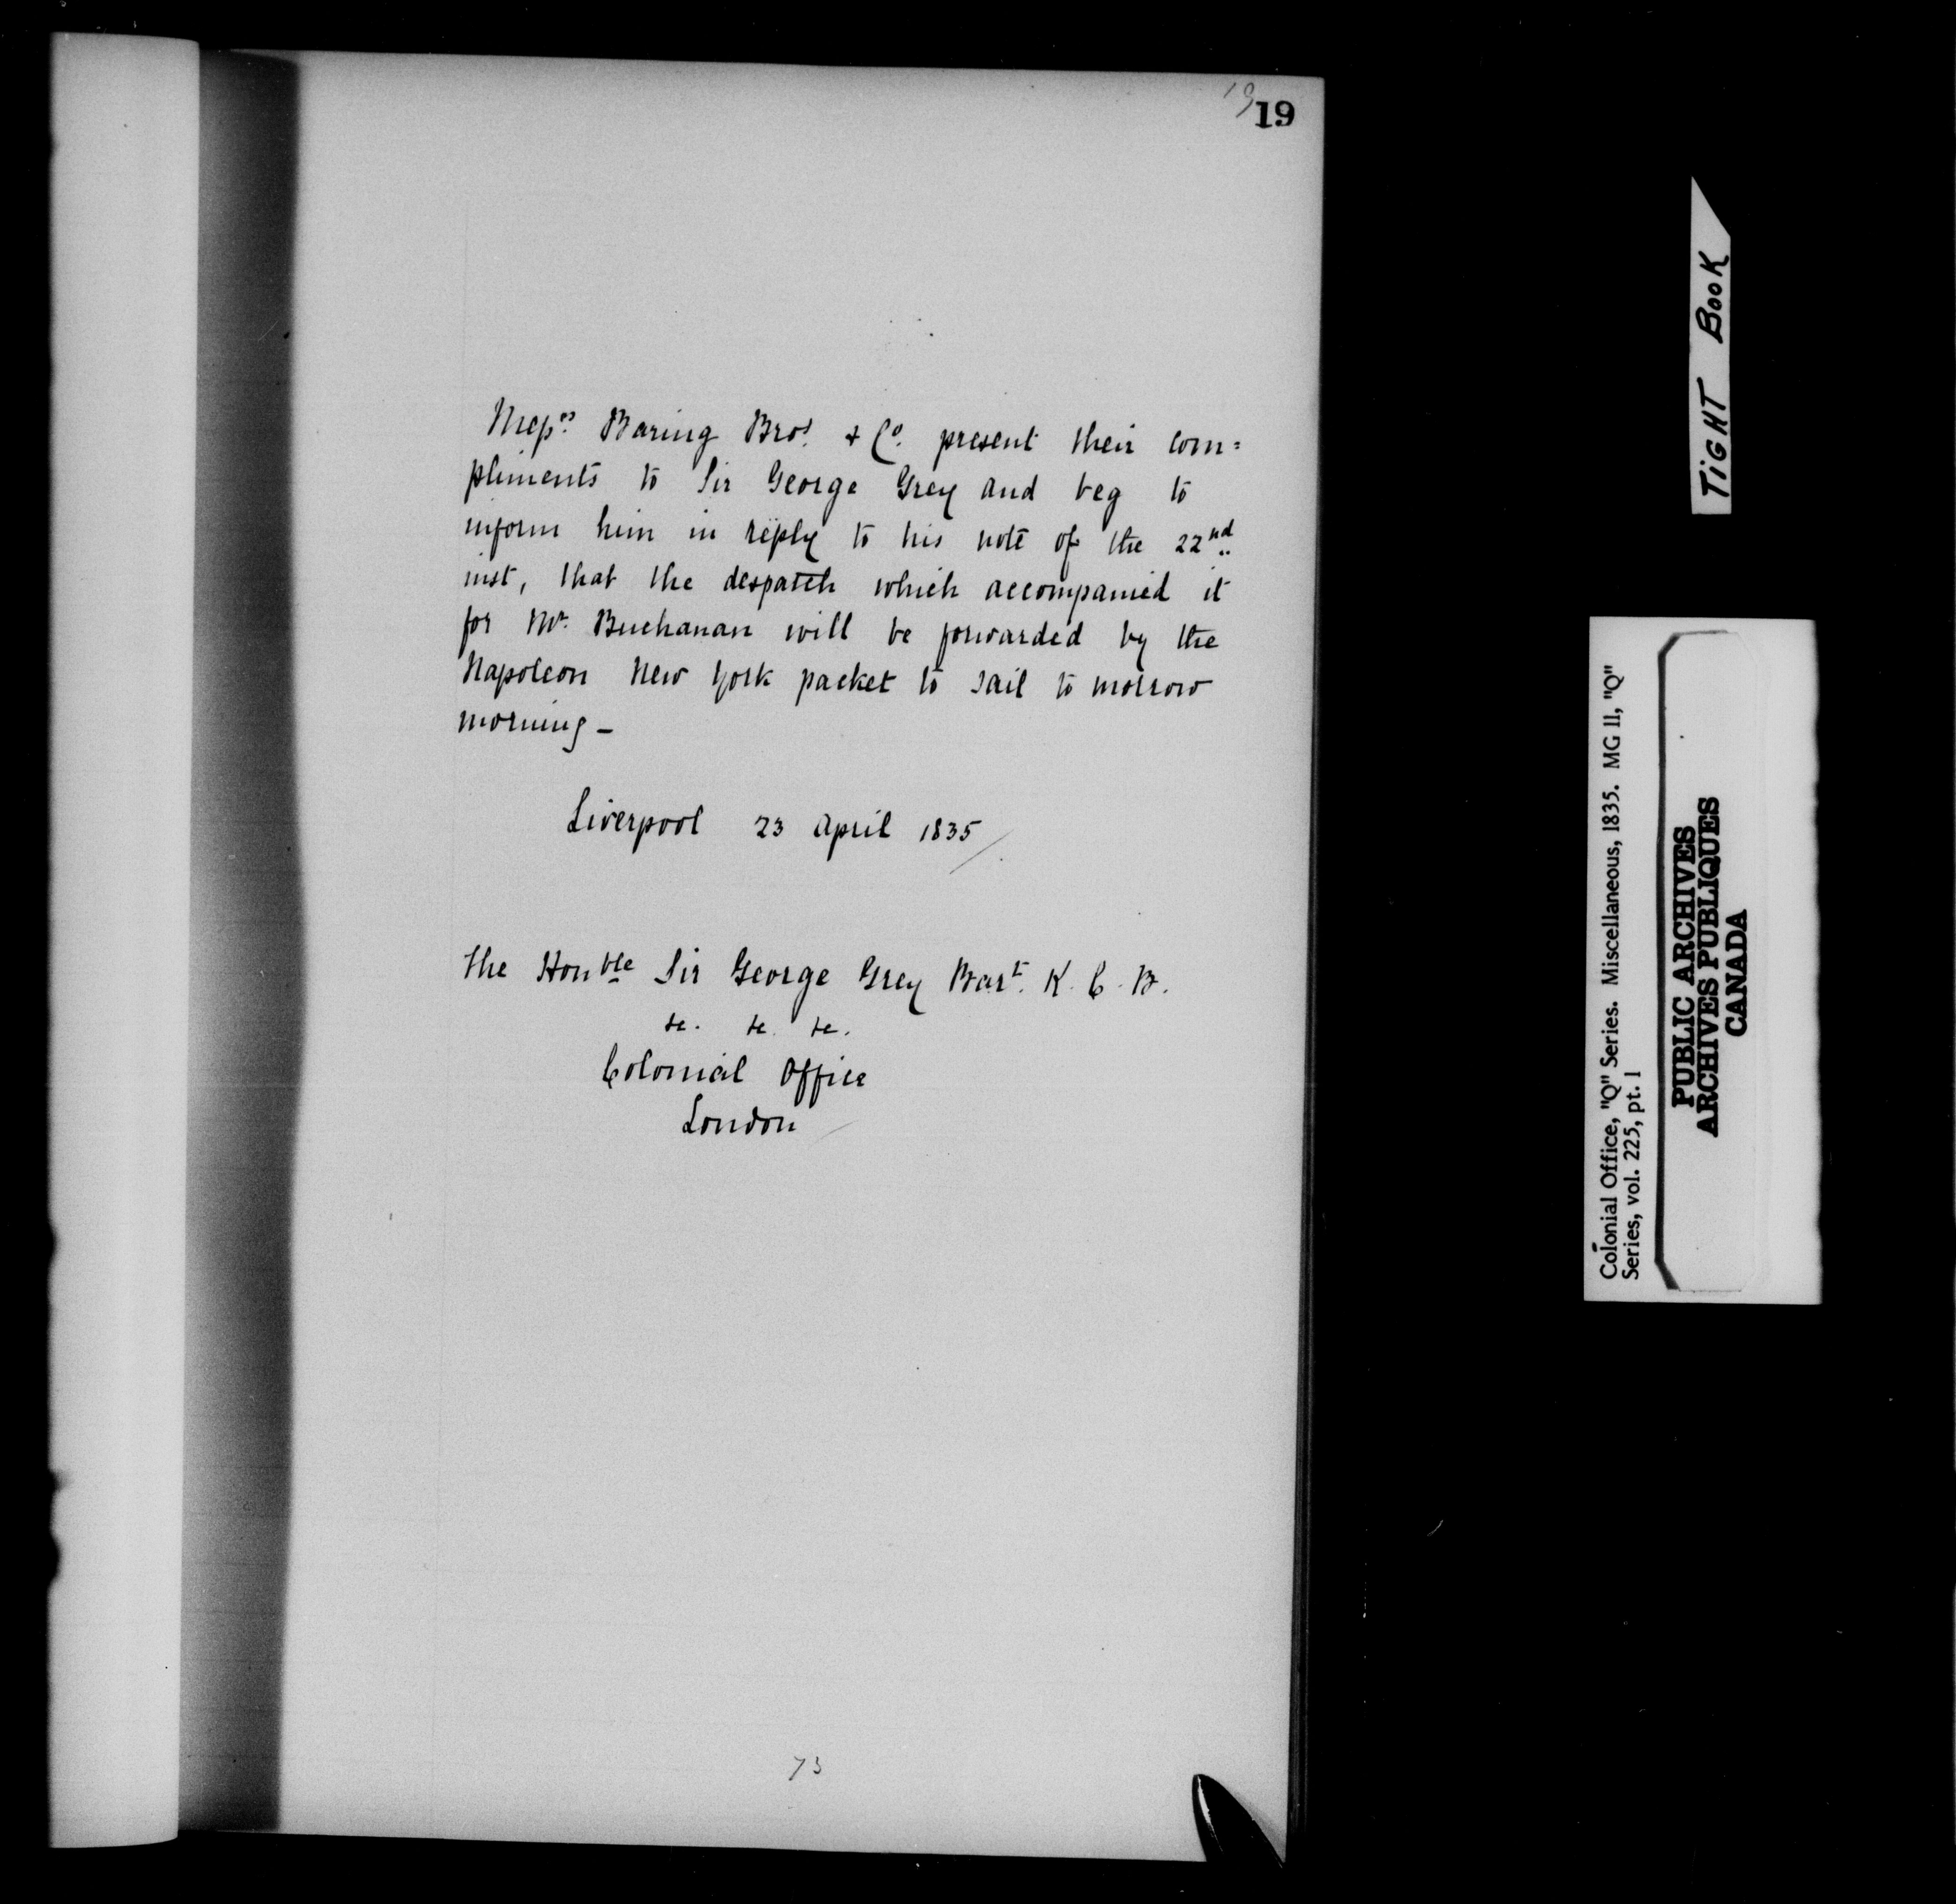 19
19
Messrs. Baring Bros. & Co. present their com=
pliments to Sir George Grey and beg to
inform him in reply to his note of the 22nd
inst, that the despatch which accompanied it
for Mr. Buchanan will be forwarded by the
Napoleon New York packet to sail to morrow
morning -
Liverpool 23 April 1835/.
The Honble Sir George Grey Bart. K. C. B.
&c. &c. &c.
Colonial Office
London
73
TIGHT BOOK
Colonial Office, "Q" Series. Miscellaneous, 1835. MG II, "Q"
Series, vol. 225, pt. I
PUBLIC ARCHIVES
ARCHIVES PUBLIQUES
CANADA